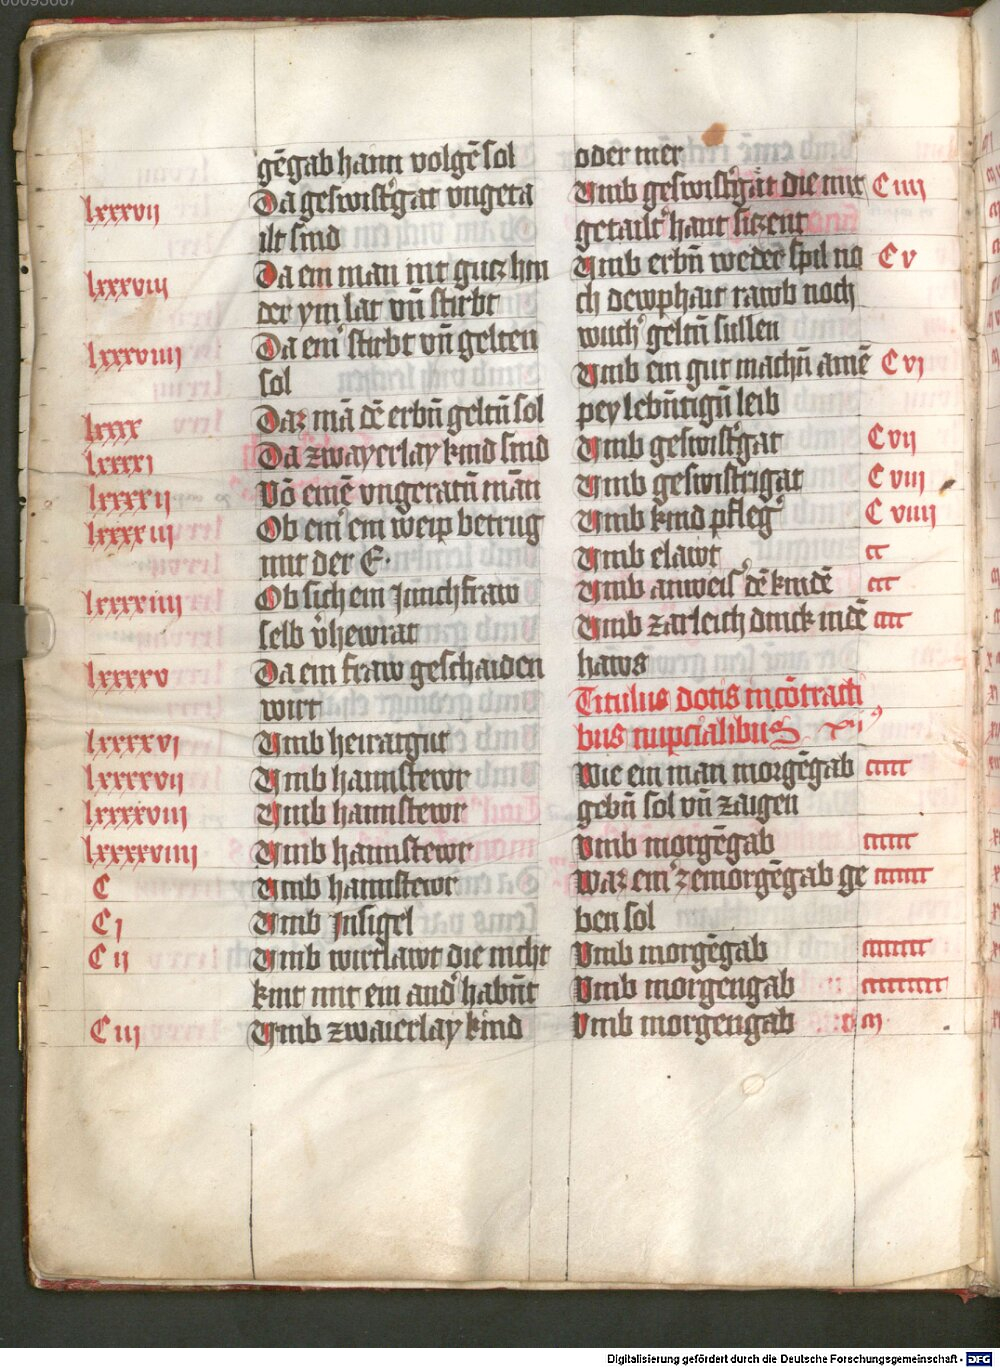 gēgab hann volgē sol
lxxxvii Da geswistʼgat vngeta
ilt sind
lxxxviii Da ein man nit gutz hin
der ym lat vn̄ stirbt
lxxxviiii Da einʼ stirbt vn̄ gelten
sol
lxxxx Daz mā dē erbn̄ geltn̄ sol
lxxxxi Da zwayerlay kind sind
lxxxxii Vō einē vngeratn̄ mān
lxxxxiii Ob einʼ ein weip betrug
mit der E·
lxxxxiiii Ob sich ein Junchfraw
selb vʼhewrat
lxxxxv Da ein fraw geschaiden
wirt
lxxxxvi Vmb heiratgut
lxxxxvii Vmb haimstewr
lxxxxviii Vmb haimstewr
lxxxxviiii Vmb haimstewr
C Vmb haimstewr
Cj Vmb Jnsigel
C ij Vmb wirtlawt die nicht
kint mit ein andʼ habn̄t
C iij Vmb zwaierlay kind
oder mer
Vmb geswistʼgat die mit C iiij
getailtʼ hant sitzent
Vmb erbn̄ wedeꝛ spil no C v
ch dewphait rawb noch
wuchʼ geltn̄ sullen
Vmb ein gut machn̄ ainē C vj
pey lebn̄tign̄ leib
Vmb geswistʼgat C vij
Vmb geswistrigat C viij
Vmb kind pflegʼ C viiij
Vmb elawt cx
Vmb anweisʼ dē kindē
Vmb zarleich dinck in dē
haws
Titulus dotis in cōtracti
bus nupcialibus xiʼ
Wie ein man morgēgab
gebn̄ sol vn̄ zaigen
Vmb morgēgab
Waz einʼ ze morgēgab ge
ben sol
Vmb morgēgab
Vmb morgengab
Vmb morgengab
Digitalisierung gefördert durch die Deutsche Forschungsgemeinschaft - DFG